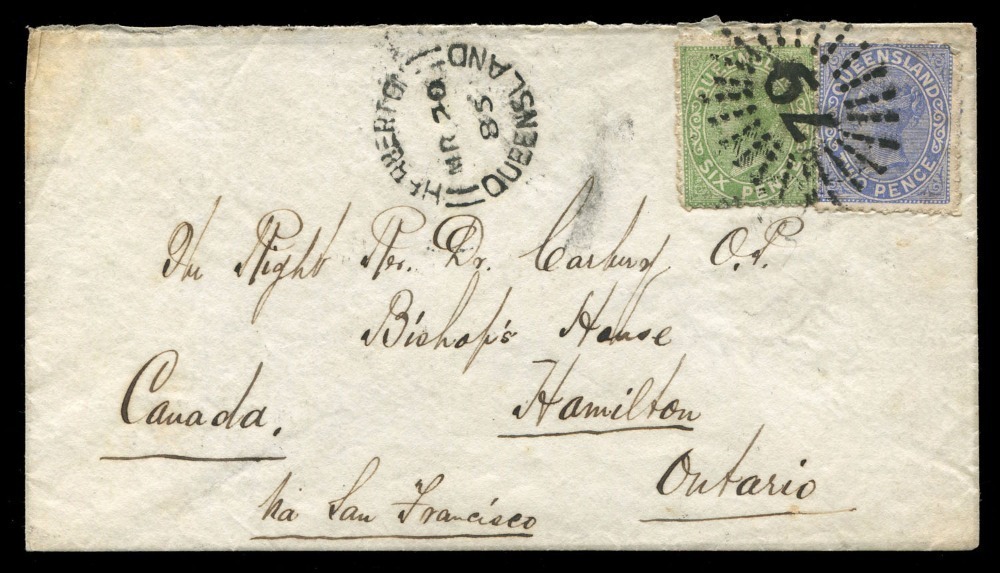 HERBERTON
MR 20
85
QUEENSLAND
QUEENSLAND
SIX PENCE
QUEENSLAND
PENCE
The Right Rev. Dr. Carbery O.P.
Bishop's House
Hamilton
Canada.
Ontario
Via San Francisco